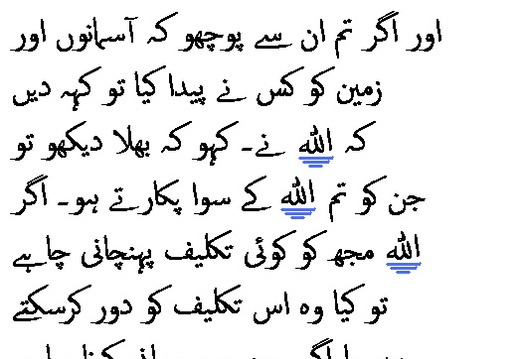 اور اگر تم ان سے پوچھو کہ آسمانوں اور
زمین کو کس نے پیدا کیا تو کہہ دیں
کہ الله نے۔ کہو کہ بھلا دیکھو تو
جن کو تم الله کے سوا پکارتے ہو۔ اگر
الله مجھ کو کوئی تکلیف پہنچانی چاہے
تو کیا وہ اس تکلیف کو دور کرسکتے